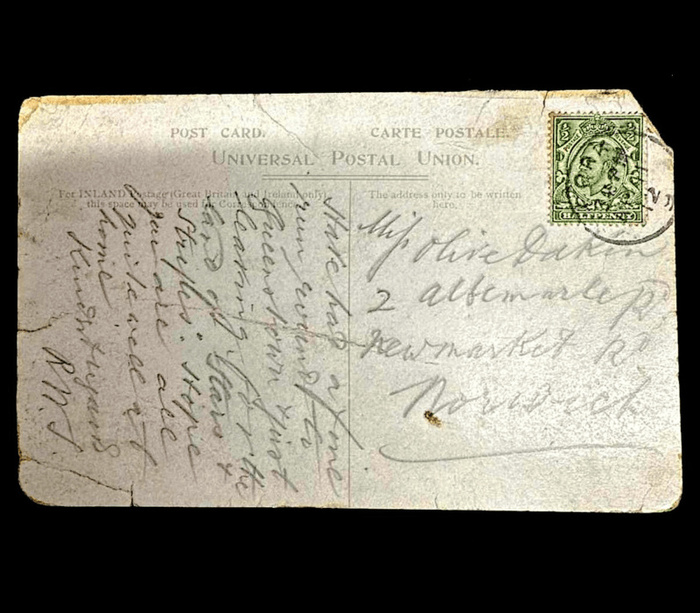 POST CARD. CARTE POSTALE.
UNIVERSAL POSTAL UNION.
For INLAND Postage (Great Britain and Ireland only)
this space may be used for Correspondence.
The address only to be written
here.
HALFPENNY
Miss Olive Dakin
2 Albemarle
Newmarket Rd
Norwich
Have had a fine
run round to
Queenstown & just
leaving for the
land of Stars &
Stripes. Hope
you are all
quite well at
home
Kind